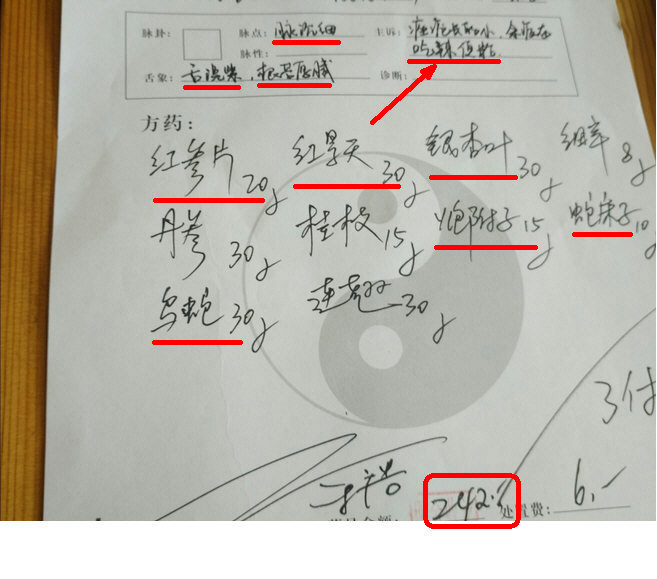 脉卦： 脉点：脉沉细 主诉：
脉性： 吃辣便粘
舌象：舌淡紫，根苔厚腻 诊断：
方药：
红参片20g 红景天30g 银杏叶30g 细辛8g
丹参30g 桂枝15g 炮附子15g 蛇床子10g
乌蛇30g 连翘30g
3付
242. 处置费：6.-